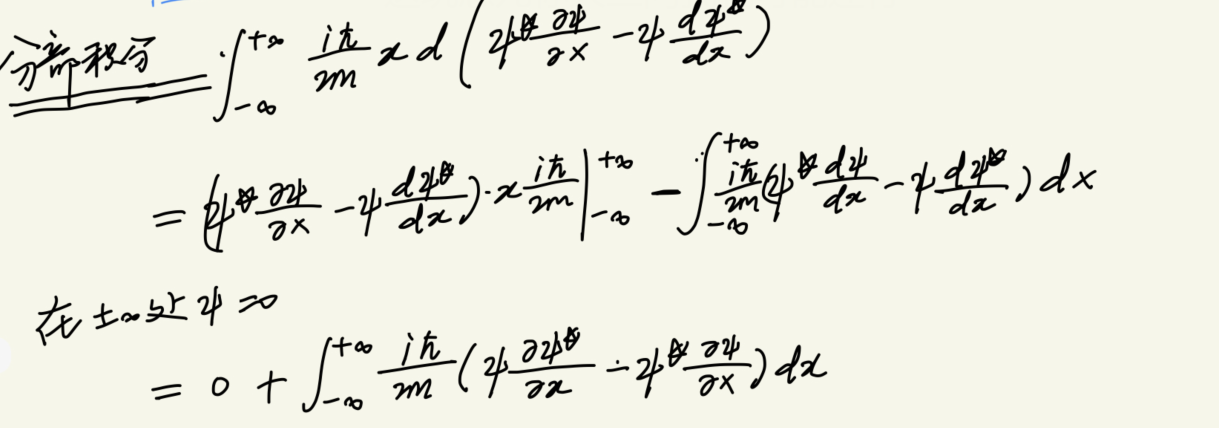 分部积分 ∫_{-∞}^{+∞} \frac{iħ}{2m} x d(ψ^* \frac{∂ψ}{∂x} - ψ \frac{dψ^*}{dx})
= (ψ^* \frac{∂ψ}{∂x} - ψ \frac{dψ^*}{dx}) · x \frac{iħ}{2m} |_{-∞}^{+∞} - ∫_{-∞}^{+∞} \frac{iħ}{2m} (ψ^* \frac{dψ}{dx} - ψ \frac{dψ^*}{dx}) dx
在 ±∞处 ψ=0
= 0 + ∫_{-∞}^{+∞} \frac{iħ}{2m} (ψ \frac{∂ψ^*}{∂x} - ψ^* \frac{∂ψ}{∂x}) dx